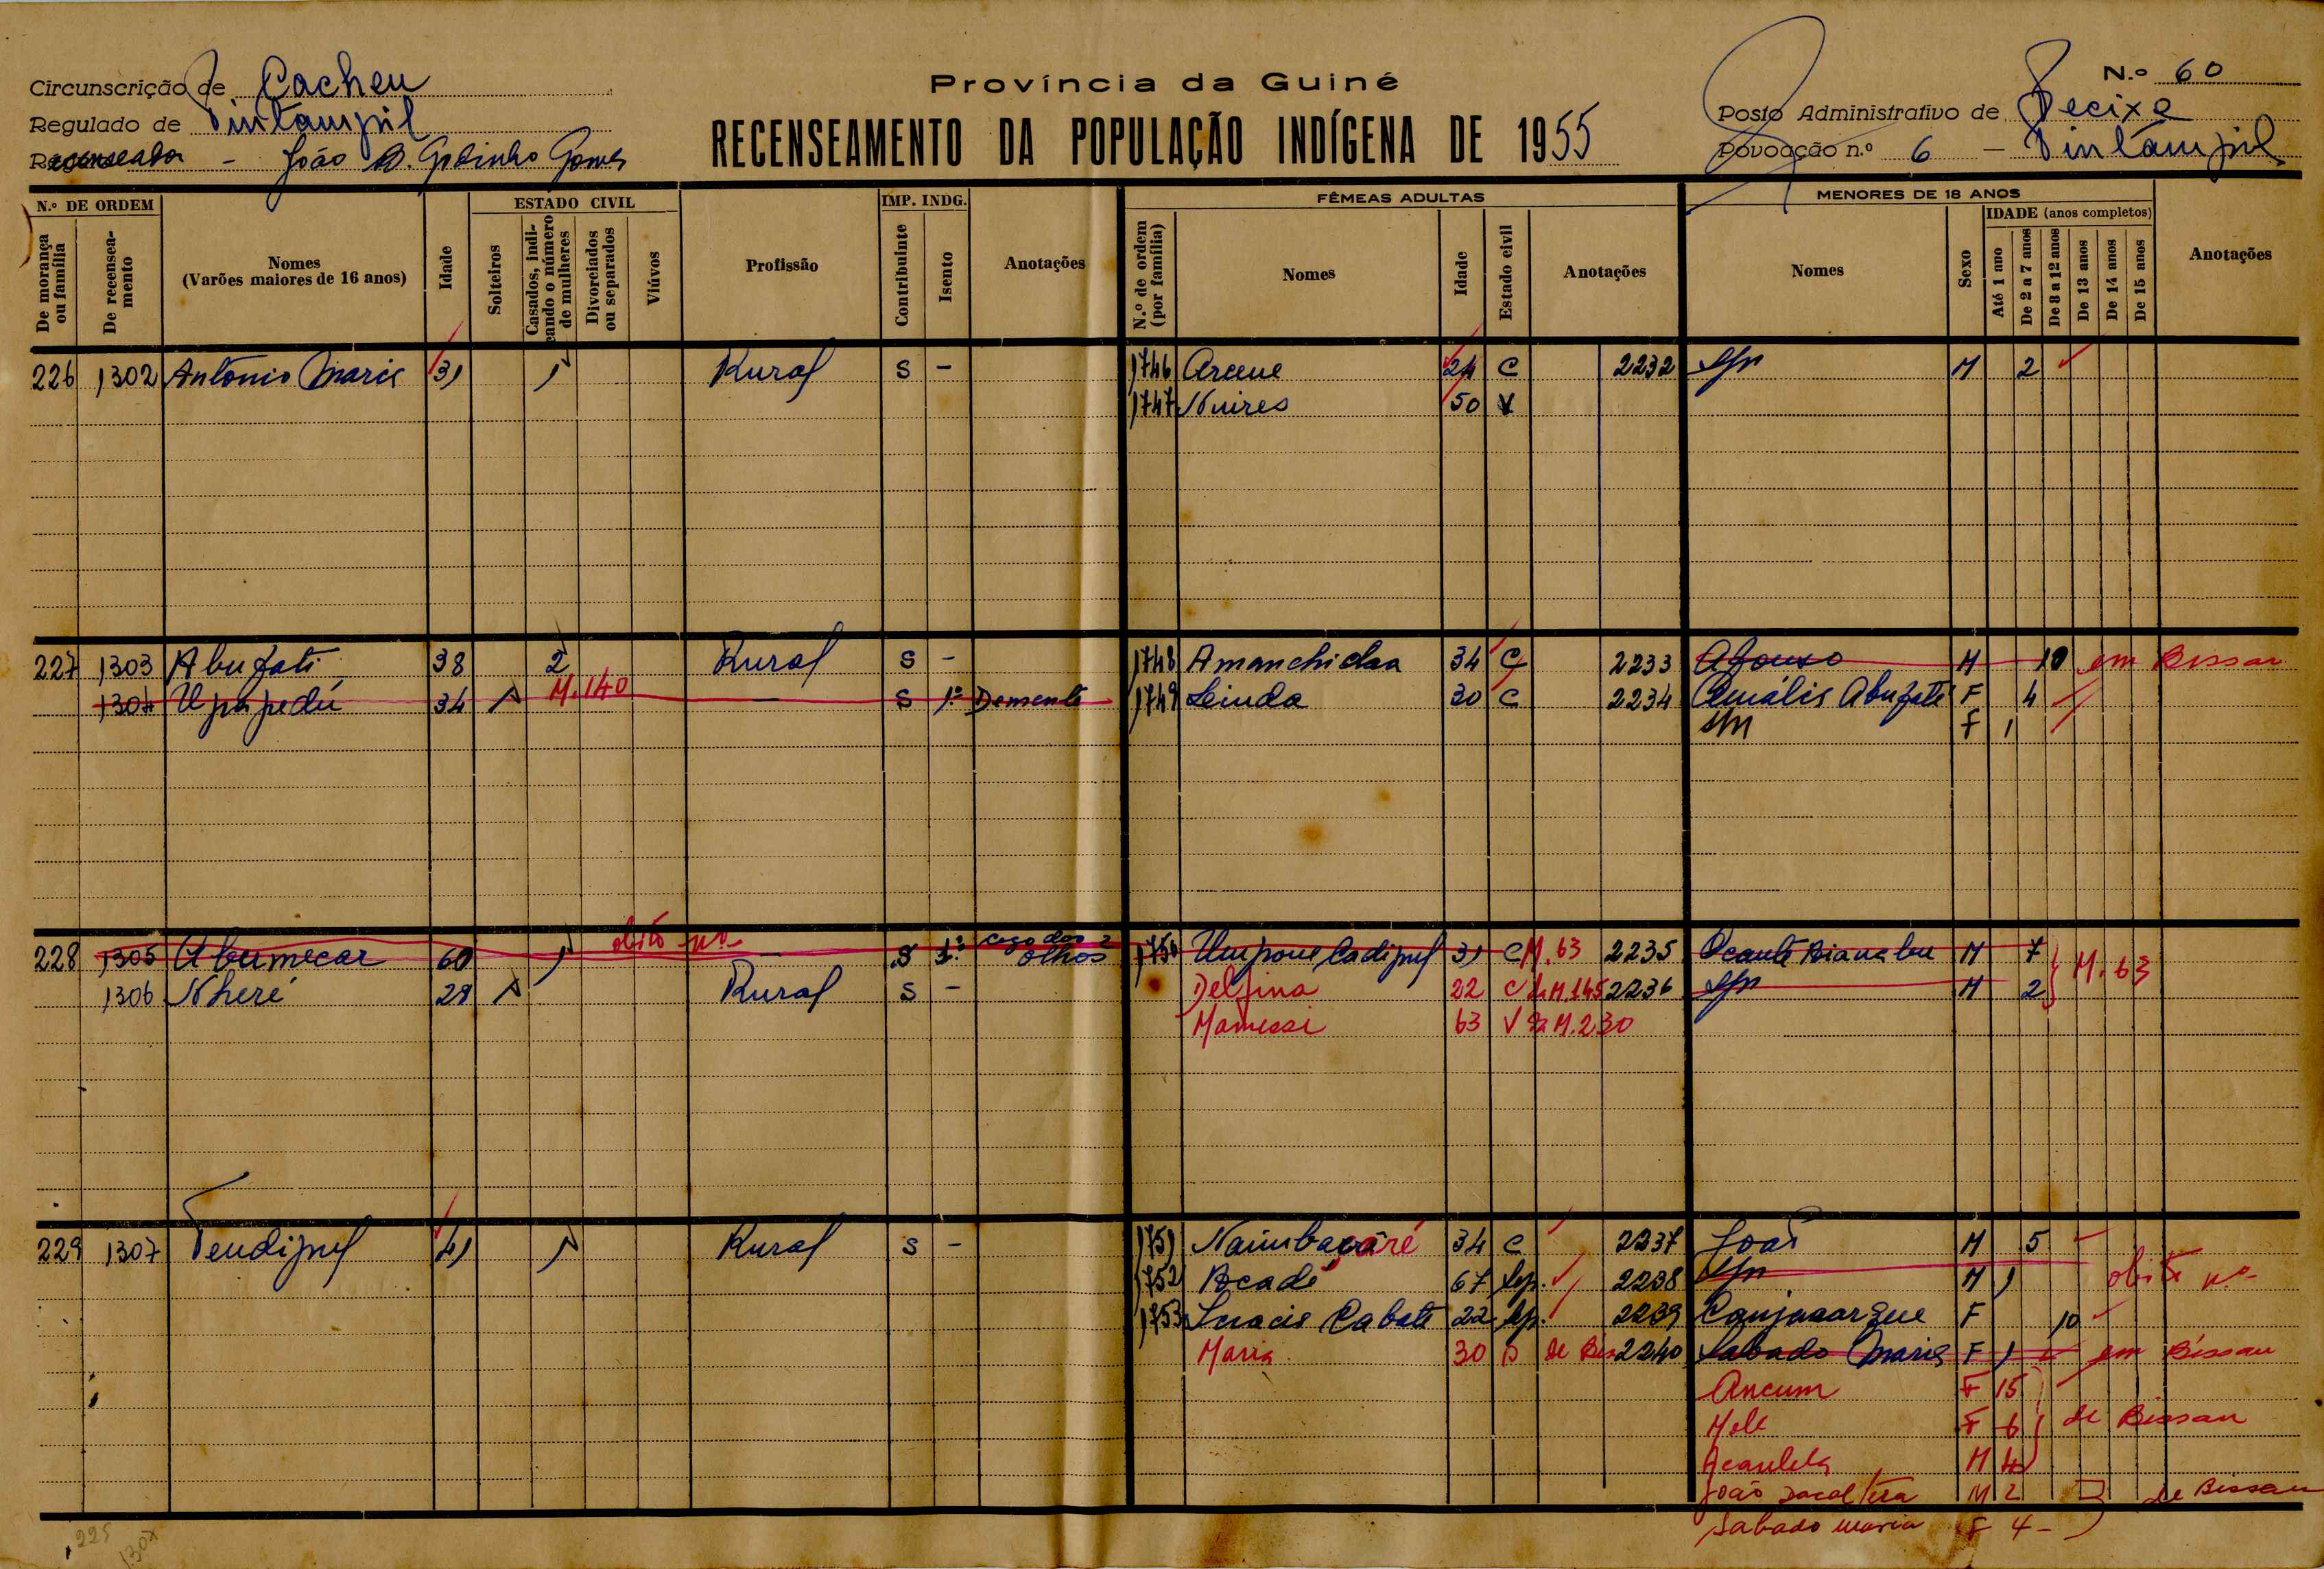 Circunscrição de Cacheu
Regulado de Pintampil
Recenseador - João B. Godinho Gomes
Província da Guiné
RECENSEAMENTO DA POPULAÇÃO INDÍGENA DE 1955
N.º 60
Posto Administrativo de Pecixe
Povoação n.º 6 - Pintampil
N.º DE ORDEM
De morança ou família
De recenseamento
Nomes (Varões maiores de 16 anos)
Idade
ESTADO CIVIL
Solteiros
Casados, indicando o número de mulheres
Divorciados ou separados
Viúvos
Profissão
IMP. INDG.
Contribuinte
Isento
Anotações
FÊMEAS ADULTAS
N.º de ordem (por família)
Nomes
Idade
Estado civil
Anotações
MENORES DE 18 ANOS
Nomes
Sexo
IDADE (anos completos)
Até 1 ano
De 2 a 7 anos
De 8 a 12 anos
De 13 anos
De 14 anos
De 15 anos
Anotações
226 1302 António Maria 31 1 Rural S - 1746 Areene 24 C 2232 S/n M 2
1747 Nuires 50 V
227 1303 Abufati 38 2 Rural S - 1748 Amanchidaa 34 C 2233 Afonso M 10 em Bissau
1304 Upapedú 34 1 M.140 - S 1º Demente 1749 Leinda 30 C 2234 Amális Abufati F 4
S/n F 1
228 1305 Abumecar 60 1 obito nº - S 1º Cego dos 2 olhos 1750 Umpone Cadipuf 31 C M.63 2235 Ocante Bianabu M 7 M.63
1306 Nheré 29 1 Rural S - Delfina 22 C da M.145 2236 S/n M 2
Mamessi 63 V da M.230
229 1307 Pendipuf 41 1 Rural S - 1751 Naimbacaré 34 C 2237 João M 5
1752 Bcadé 67 Sep. 2238 S/n M 1 obito nº
1753 Inacia Cabate 22 Sep. 2239 Canjacarque F 10
Maria 30 D de Bis 2240 Sabado Maria F 1 em Bissau
Ancum F 15
Mole F 6 de Bissau
Acaulela M 4
João M 2 de Bissau
Sabado Maria F 4 -
225
1307